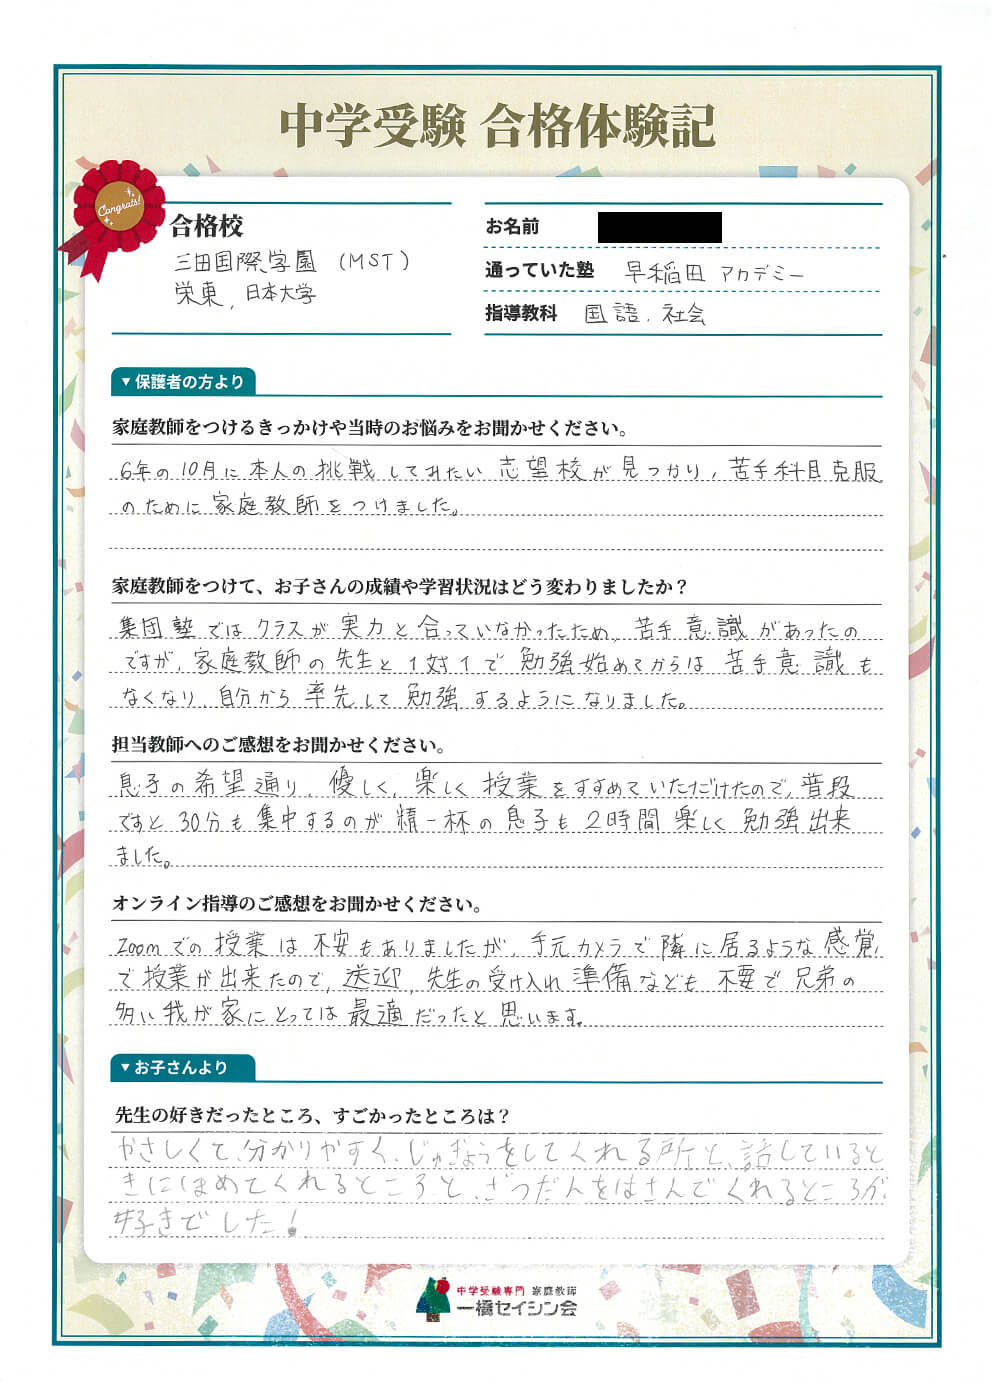 中学受験 合格体験記
Congrats!
合格校
三田国際学園 (MST)
栄東, 日本大学
お名前
通っていた塾 早稲田アカデミー
指導教科 国語. 社会
▼保護者の方より
家庭教師をつけるきっかけや当時のお悩みをお聞かせください。
6年の10月に本人の挑戦してみたい志望校が見つかり, 苦手科目克服
のために家庭教師をつけました。
家庭教師をつけて、お子さんの成績や学習状況はどう変わりましたか？
集団塾ではクラスが実力と合っていなかったため, 苦手意識があったの
ですが, 家庭教師の先生と1対1で勉強始めてからは苦手意識も
なくなり, 自分から率先して勉強するようになりました。
担当教師へのご感想をお聞かせください。
息子の希望通り, 優しく, 楽しく授業をすすめていただけたので, 普段
ですと30分も集中するのが精一杯の息子も2時間楽しく勉強出来
ました。
オンライン指導のご感想をお聞かせください。
Zoomでの授業は不安もありましたが, 手元カメラで隣に居るような感覚
で授業が出来たので, 送迎, 先生の受け入れ準備なども不要で兄弟の
多い我が家にとっては最適だったと思います。
▼お子さんより
先生の好きだったところ、すごかったところは？
やさしくて、分かりやすく、じゅぎょうをしてくれる所と、話していると
きにほめてくれるところと、ざつだんをはさんでくれるところが
好きでした！
中学受験専門 家庭教師
一橋セイシン会